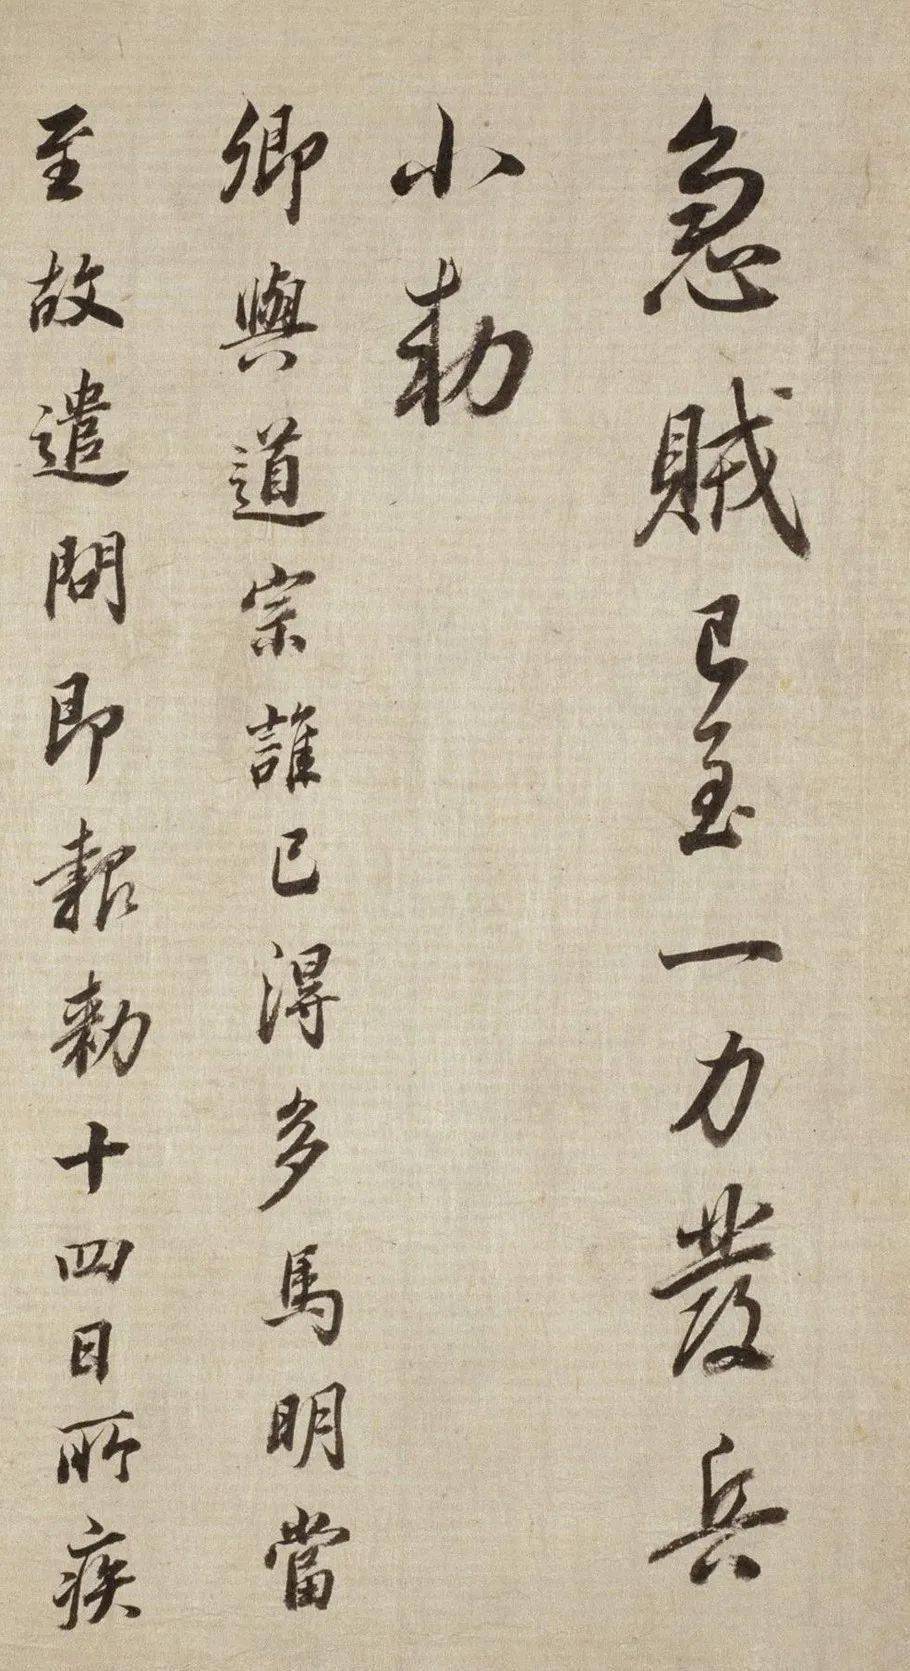 急賊已至一力發兵
小勅
卿與道宗誰已得多馬明當
至故遣問即報勅十四日所疾